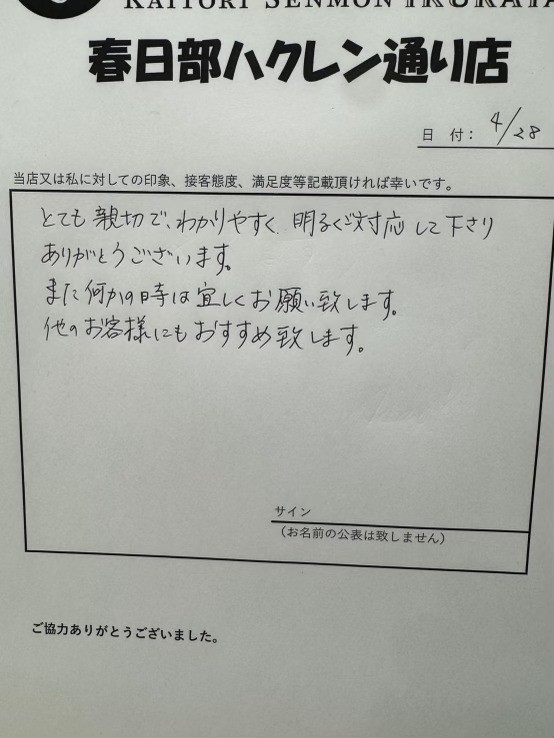 KAITORI SENMON IKURAYA
春日部ハクレン通り店
日 付： 4/28
当店又は私に対しての印象、接客態度、満足度等記載頂ければ幸いです。
とても親切で、わかりやすく、明るくご対応して下さり
ありがとうございます。
また何かの時は宜しくお願い致します。
他のお客様にもおすすめ致します。
サイン
（お名前の公表は致しません）
ご協力ありがとうございました。